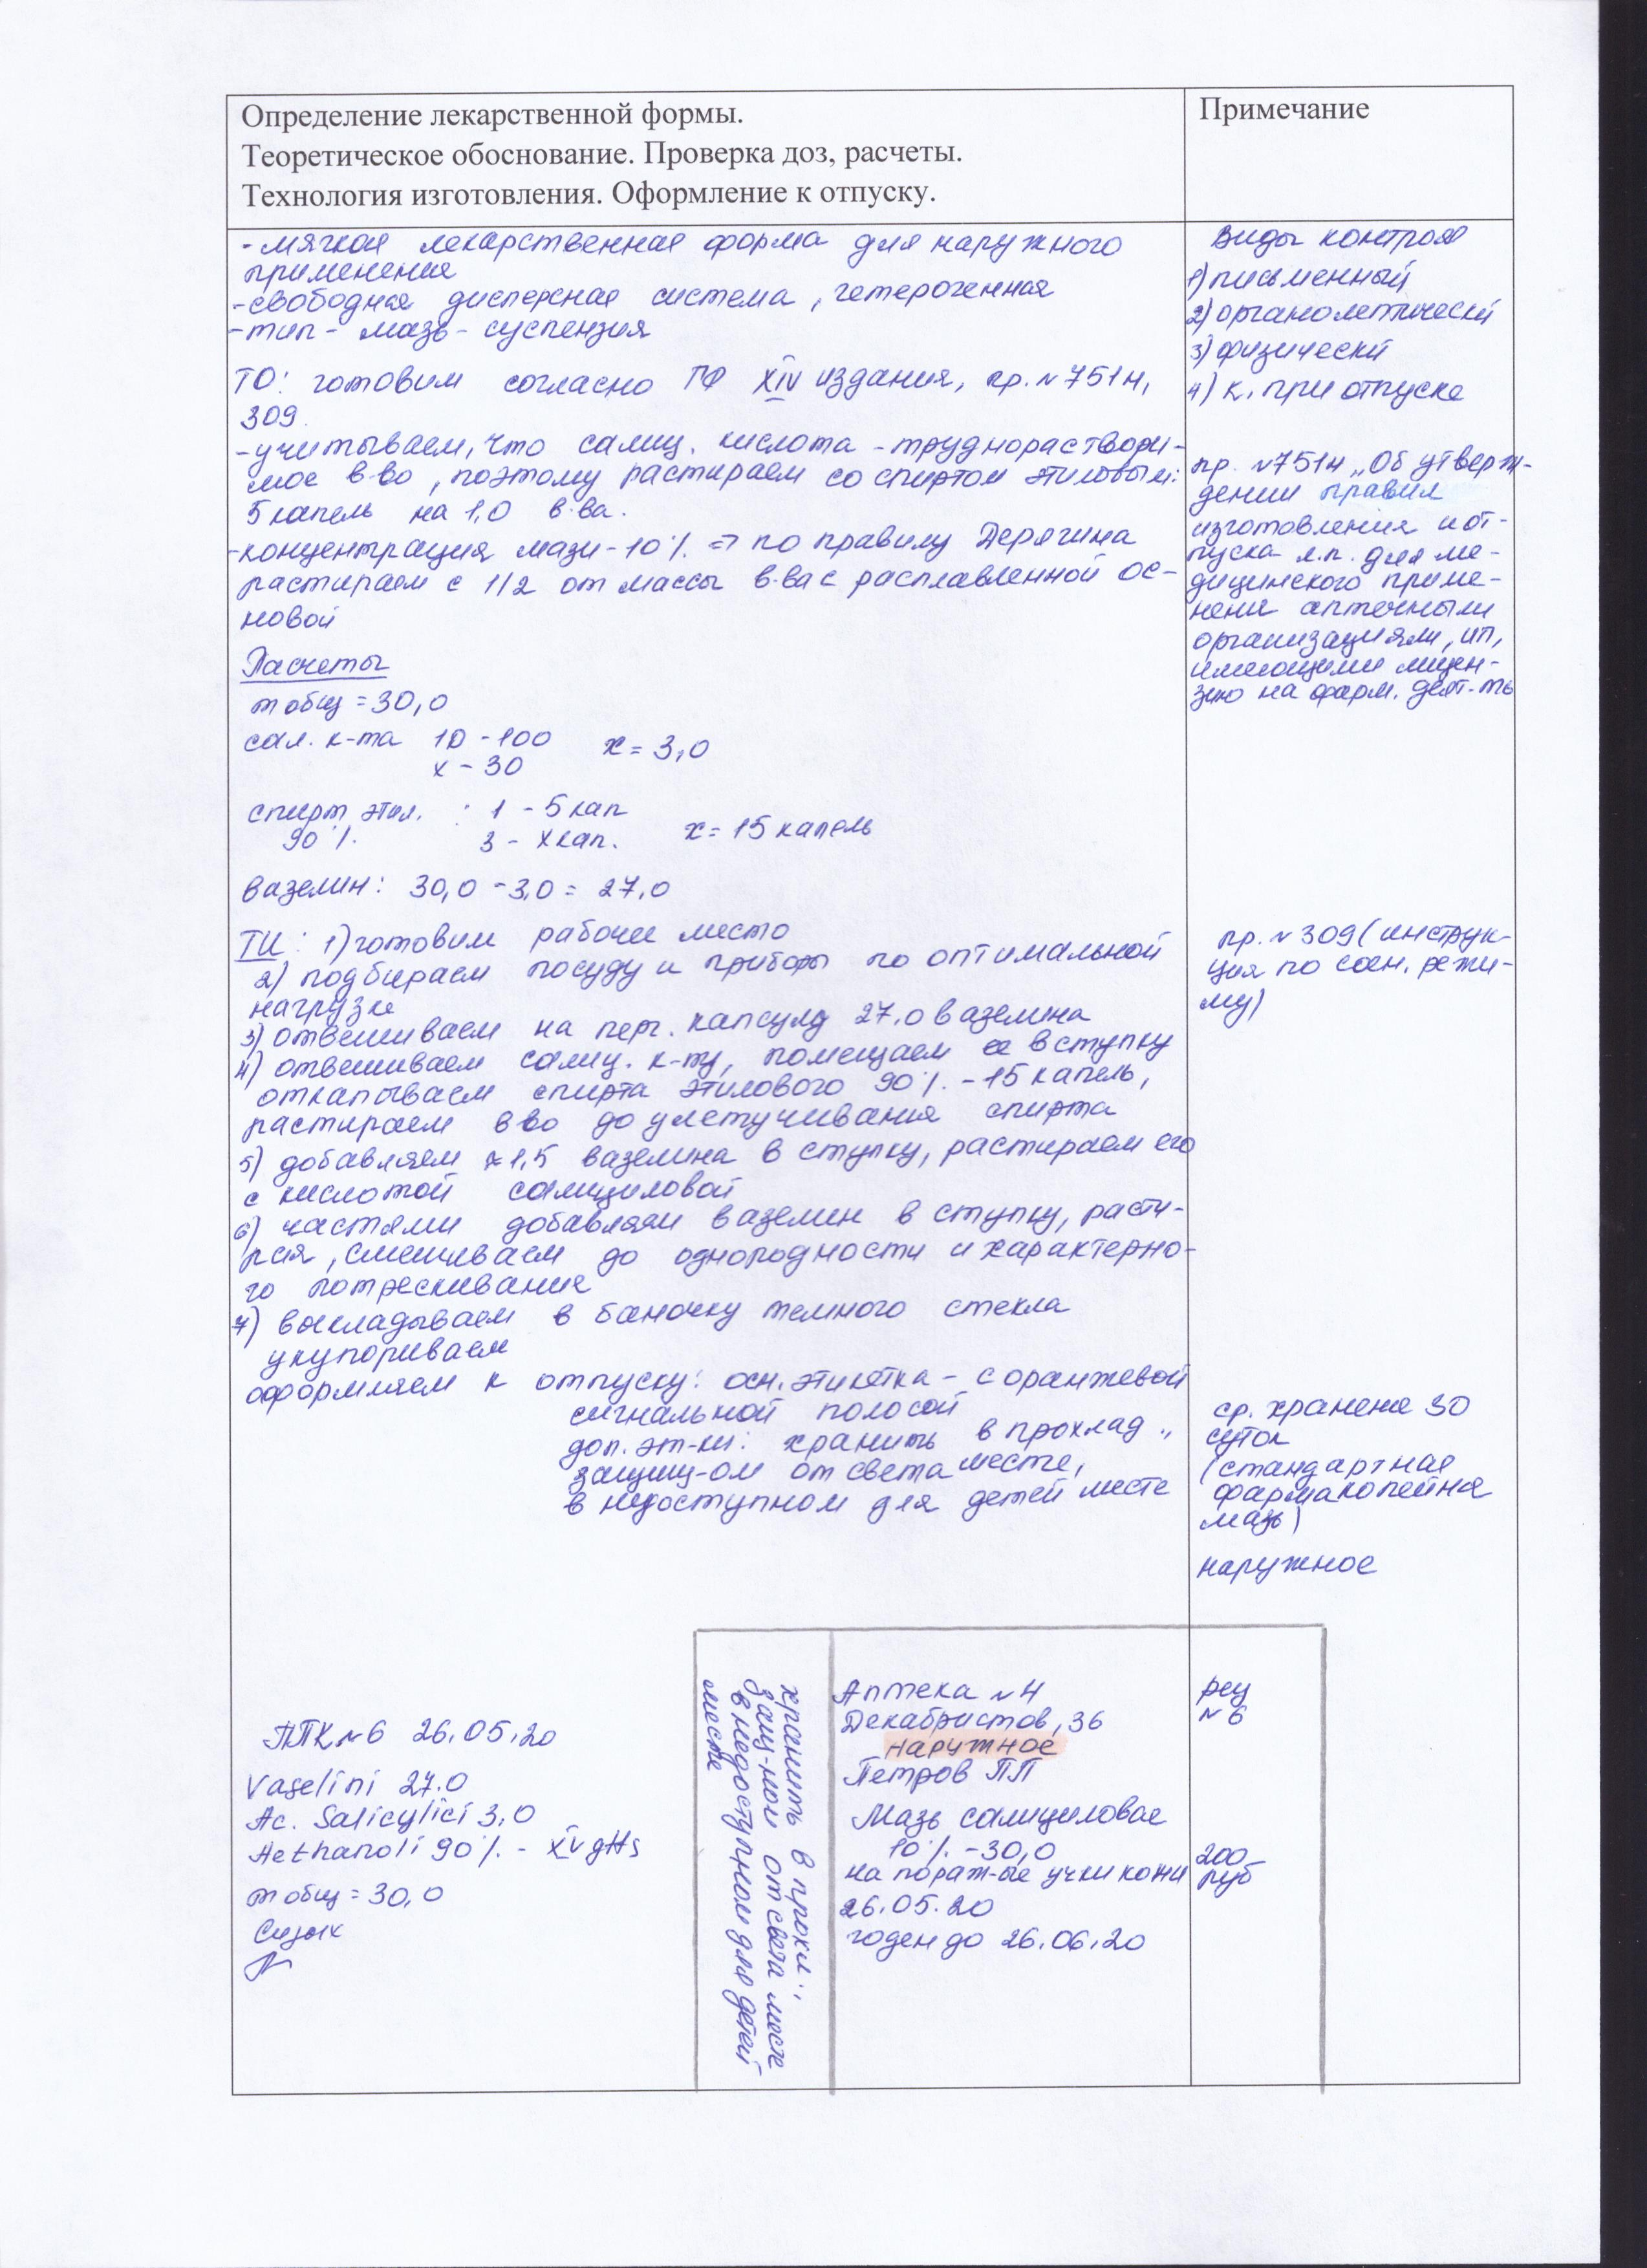 Определение лекарственной формы.
Теоретическое обоснование. Проверка доз, расчеты.
Технология изготовления. Оформление к отпуску.
Примечание
- мягкая лекарственная форма для наружного
применения
- свободная дисперсная система, гетерогенная
- тип - мазь - суспензия
ТО: готовим согласно ГФ XIV издания, пр. №751н,
309
- учитываем, что салиц. кислота - труднораствори-
мое в-во, поэтому растираем со спиртом этиловым:
5 капель на 1,0 в-ва.
- концентрация мази - 10% => по правилу Дерягина
растираем с 1/2 от массы в-ва с расплавленной ос-
новой
Расчеты
m общ = 30,0
сал. к-та 10 - 100 x = 3,0
x - 30
спирт этил. : 1 - 5 кап
90% 3 - x кап. x = 15 капель
вазелин: 30,0 - 3,0 = 27,0
ТИ: 1) готовим рабочее место
2) подбираем посуду и приборы по оптимальной
нагрузке
3) отвешиваем на перг. капсулу 27,0 вазелина
4) отвешиваем салиц. к-ту, помещаем ее в ступку
откапываем спирта этилового 90% - 15 капель,
растираем в-во до улетучивания спирта
5) добавляем ≈ 1,5 вазелина в ступку, растираем его
с кислотой салициловой
6) частями добавляем вазелин в ступку, расти-
рая, смешиваем до однородности и характерно-
го потрескивания
7) выкладываем в баночку темного стекла
укупориваем
оформляем к отпуску: осн. этикетка - с оранжевой
сигнальной полосой
доп. эт-ки: хранить в прохлад.,
защищ-ом от света месте,
в недоступном для детей месте
Виды контроля
1) письменный
2) органолептически
3) физически
4) к. при отпуске
пр. №751н „Об утверж-
дении правил
изготовления и от-
пуска л.п. для ме-
дицинского приме-
нения аптечными
организациями, ип,
имеющими лицен-
зию на фарм. деят-ть
пр. №309 (инструк-
ция по сан. режи-
му)
ср. хранение 30
суток
(стандартная
фармакопейная
мазь)
наружное
ППК №6 26.05.20
Vaselini 27.0
Ac. Salicylici 3,0
Aethanoli 90% - XV gtts
m общ = 30,0
хранить в прохл.,
защ-ном от света месте
в недоступном для детей
месте
Аптека №4
Декабристов, 36
Наружное
Петров ПП
Мазь салициловая
10% - 30,0
на пораж-ые уч-ки кожи
26.05.20
годен до 26.06.20
рец
№6
200
руб